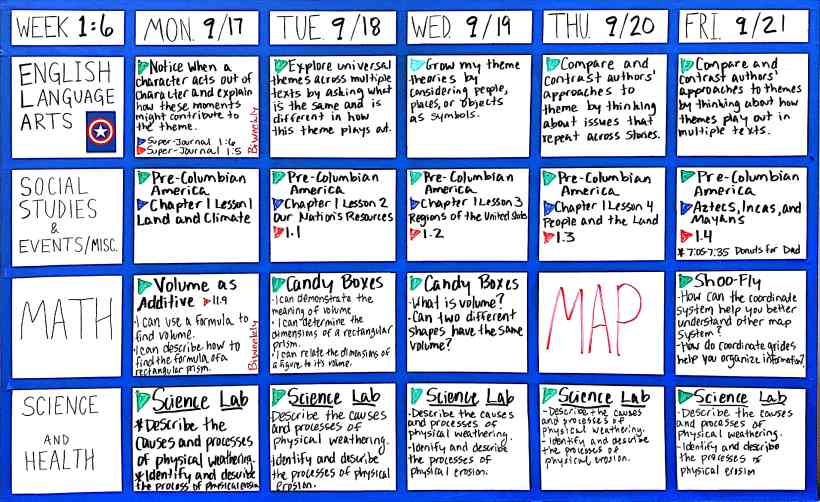 WEEK 1:6
MON. 9/17
TUE. 9/18
WED. 9/19
THU. 9/20
FRI. 9/21
ENGLISH
LANGUAGE
ARTS
Notice when a
character acts out of
character and explain
how these moments
might contribute to
the theme.
Super-Journal 1:6
Super-Journal 1:5
Biweekly
Explore universal
themes across multiple
texts by asking what
is the same and is
different in how
this theme plays out.
Grow my theme
theories by
considering people,
places, or objects
as symbols.
Compare and
contrast authors'
approaches to
theme by thinking
about issues that
repeat across stories.
Compare and
contrast authors'
approaches to themes
by thinking about how
themes play out in
multiple texts.
SOCIAL
STUDIES
&
EVENTS/MISC.
Pre-Columbian
America
Chapter 1 Lesson 1
Land and Climate
Pre-Columbian
America
Chapter 1 Lesson 2
Our Nation's Resources
1.1
Pre-Columbian
America
Chapter 1 Lesson 3
Regions of the United States
1.2
Pre-Columbian
America
Chapter 1 Lesson 4
People and the Land
1.3
Pre-Columbian
America
Aztecs, Incas, and
Mayans
1.4
* 7:05-7:35 Donuts for Dad
MATH
Volume as
Additive 11.9
·I can use a formula to
find volume.
·I can describe how to
find the formula of a
rectangular prism.
Biweekly
Candy Boxes
·I can demonstrate the
meaning of volume
·I can determine the
dimensions of a rectangular
prism.
·I can relate the dimensions of
a figure to it's volume.
Candy Boxes
·What is volume?
·Can two different
shapes have the same
volume?
MAP
Shoo-Fly
-How can the coordinate
system help you better
understand other map
system?
-How do coordinate grides
help you organize information?
SCIENCE
AND
HEALTH
Science Lab
*Describe the
causes and processes
of physical weathering.
*Identify and describe
the process of physical erosion
Science Lab
·Describe the causes
and processes of
physical weathering.
·Identify and describe
the processes of physical
erosion.
Science Lab
·Describe the causes
and processes of
physical weathering.
·Identify and describe
the processes of
physical erosion.
Science Lab
-Describe the causes
and processes of
physical weathering.
-Identify and describe
the processes of
physical erosion.
Science Lab
-Describe the causes
and processes of
physical weathering.
-Identify and describe
the processes of
physical erosion